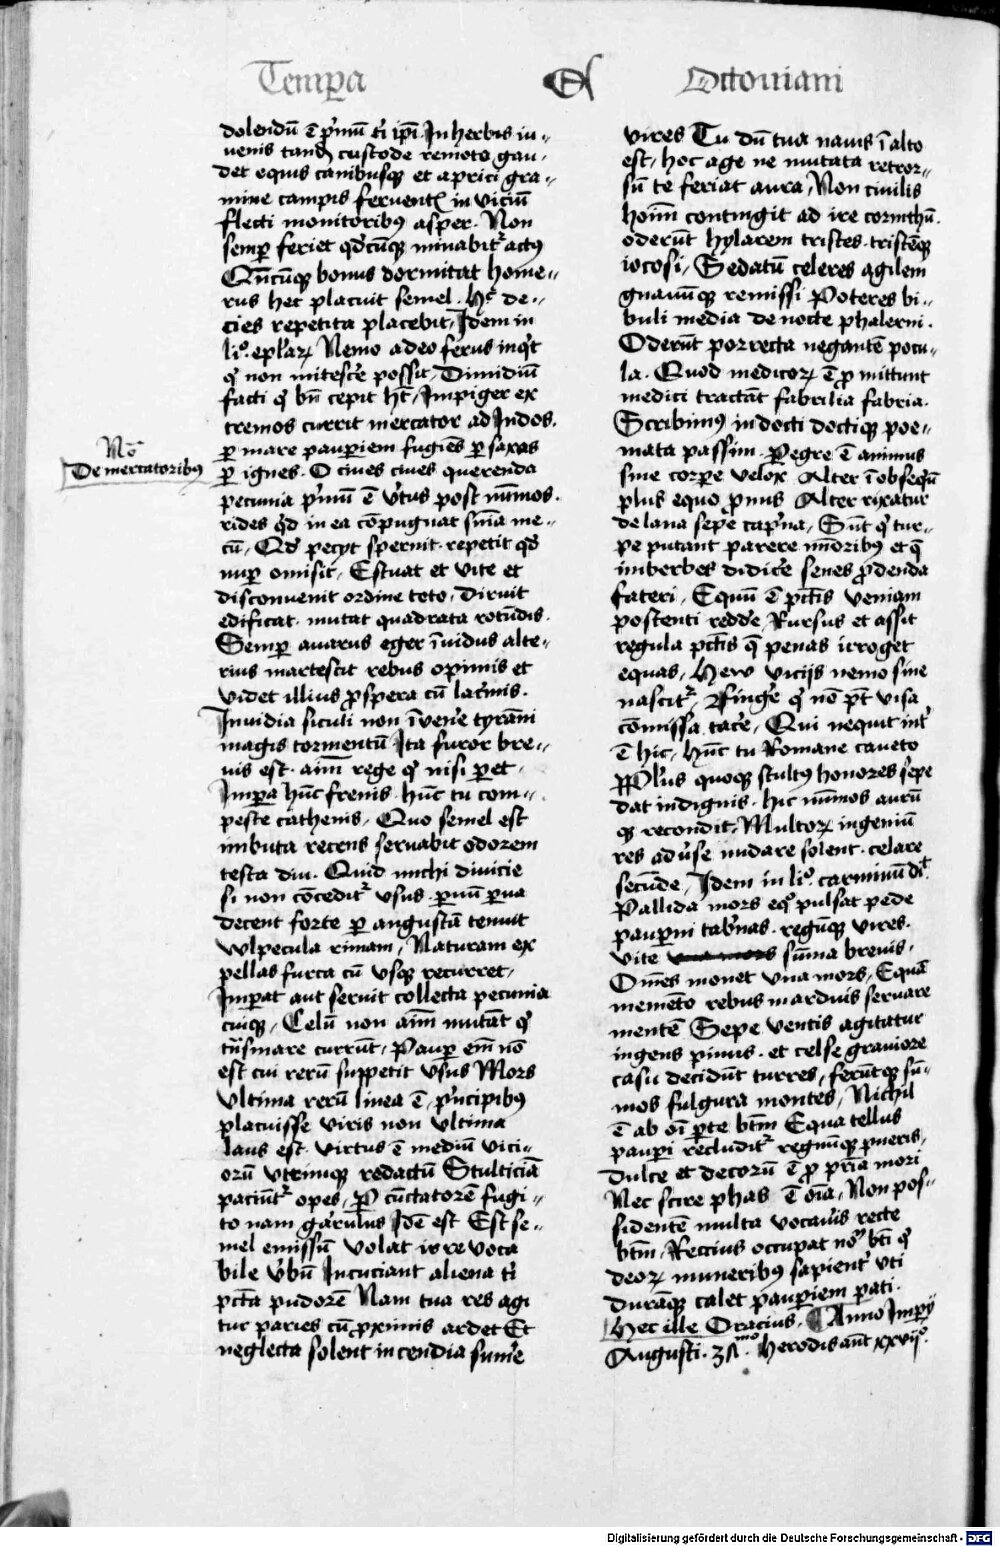 Temp̲a
Ottouiani
dolendū ē p̓mū t̓i ip̄i. In herbis iu-
uenis tand̄ custode remoto, gau-
det equis canibusqꝫ et aprici gra-
mine campis feruentꝭ in viciū
flecti monitoribꝰ asꝑ. Non
semꝑ feriet qd̓cūqꝫ minabit᷑ actꝰ
Qn̄cūqꝫ bonus dormitat home-
rus hec placuit semel. he͛ de-
cies repetita placebit, Idem in
li͛o. epl̓arꝝ Nemo adeo ferus inqͥt
qͥ non mitesc̓e possit, Dimidiū
facti qͥ bn̄ cepit hꝫ, Impiger ex
tremos currit mercator ad Indos.
ꝑ mare pauꝑiem fugiēs ꝑ saxas
ꝑ ignes. O ciues ciues querenda
pecunia p̓mū ē v̓tus post nūmos.
rides qͥd in ea cōpugnat sn̄ia me-
cū, Qd̓ pecyt spernit. repetit qd̓
nuꝑ omisit, Estuat et vite et
disconuenit ordine toto, diruit
edificat. mutat quadrata rotūdis.
Semꝑ auarus eger īuidus alte-
rius martescit rebus opimis et
videt illius ꝓspera cū lac̓mis.
Inuidia siculi non īuen̓e tyrāni
magis tormentū Ita furor bre-
uis est. aīm rege qͥ nisi ꝑet,
Imꝑa hūc frenis. hūc tu com-
peste cathenis, Quo semel est
imbuta recens seruabit odorem
testa diu. Quid michi diuicie
si non cōcedit᷑ vsus. ꝑuū ꝑua
decent forte ꝑ angustā tenuit
wlpecula rimam, Naturam ex
pellas furca cū vsqꝫ recurret,
Imꝑat aut seruit collecta pecunia
cuiqꝫ, Celū non aīm mutāt qͥ
tn̄smare currūt, Pauꝑ em̄ nō
est cui rerū suppetit vsus Mors
vltima rerū linea ē, p̓ncipibꝰ
placuisse viris non vltima
laus est. virtus ē mediū vici-
orū vtrimqꝫ redactū Stulticiā
paciūt᷑ opes, Ꝑ cūctatorē fugi-
to nam garulus Idē est Est se-
mel emissū volat irreuoca
bile v̓bū Incuciant aliena t̓i
pctā pudorē Nam tua res agi
tur paries cū ꝓximis ardet Et
neglecta solent incendia sum̓e
No͛
De mercatoribꝰ
vires Tu dū tua nauis ī alto
est, hoc age ne mutata retror-
sū te feriat aura, Non ciuilis
hoīm contingit ad ire corinthū.
oderūt hylarem tristes. tristēqꝫ
iocosi, Sedatū celeres agilem
gnauūqꝫ remissi Poteres bi-
buli media de nocte phalerni.
Oderūt porrecta negantē pocu-
la. Quod medicorꝝ ē ꝓmittunt
medici tractāt fabrilia fabria.
Scribimꝰ indocti doctiqꝫ poe-
mata passim. Ꝑegre ē animus
sine corpe velox Alter ī obseqͥū
plus equo ꝓnus Alter rixatur
de lana sepe cap̓na, Sūt qͥ tur-
pe putant parere mīoribꝰ et q̄
imberbes didic̓e senes ꝓdenda
fateri, Equū ē pctīs veniam
postenti redde, Rursus et assit
regula pctīs q̄ penas irroget
equas, Hew vicijs nemo sine
nascit᷑, Fing̓e qͥ nō pt̄ visa
cōmissa tac̓e, Qui nequit int̓
ē hic, hūc tu Romane caueto
Pl̓us quoqꝫ stultꝰ honores sepe
dat indignis. hic nūmos aurū
qꝫ recondit, Multorꝝ ingeniū
res adu̓se nudare solent. celare
secūde, Idem in li͛o. carminū di͛t
Pallida mors eqͦ pulsat pede
pauꝑni tab̓nas. regūqꝫ vires.
vite sūma breuis,
Om̄es monet vna mors, Equā
memēto rebus in arduis seruare
mentē Sepe ventis agitatur
ingens pinus. et celse grauiore
casu decidūt turres, feriūtqꝫ sū-
mos fulgura montes, Nichil
ē ab oī ꝑte btm̄ Equa tellus
pauꝑi recludit᷑ regnūqꝫ pueris,
Dulce et decorū ē ꝓ pr̄ia mori
Nec scire phas ē oīa, Non pos-
sidentē multa vocau̓is recte
btm̄, Reccius occupat noꝫ bt̄i qͥ
deorꝝ muneribꝰ sapient̓ vti
durāqꝫ calet pauꝑiem pati.
Hec ille Oracius, Anno Imꝑij
Augusti. 31.mo herodis aūt xxvijo.
Digitalisierung gefördert durch die Deutsche Forschungsgemeinschaft - DFG